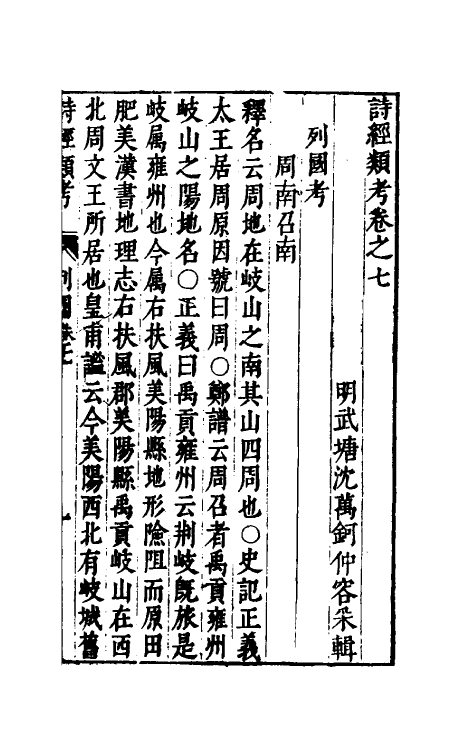 詩經類考卷之七
明武塘沈萬鈳仲容采輯
列國考
周南召南
釋名云周地在岐山之南其山四周也○史記正義
太王居周原因號曰周○鄭譜云周召者禹貢雍州
岐山之陽地名○正義曰禹貢雍州云荆岐既旅是
岐屬雍州也今属右扶風美陽縣地形險阻而原田
肥美漢書地理志右扶風郡美陽縣禹貢岐山在西
北周文王所居也皇甫謐云今美陽西北有岐城舊
詩經類考
列國卷七
一